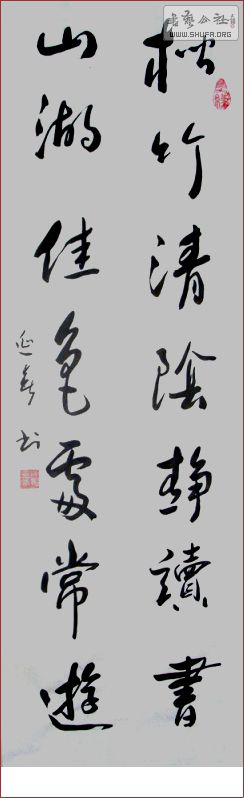 松竹清陰静讀書
山湖佳色處常遊
书艺公社
WWW.SHUFA.ORG